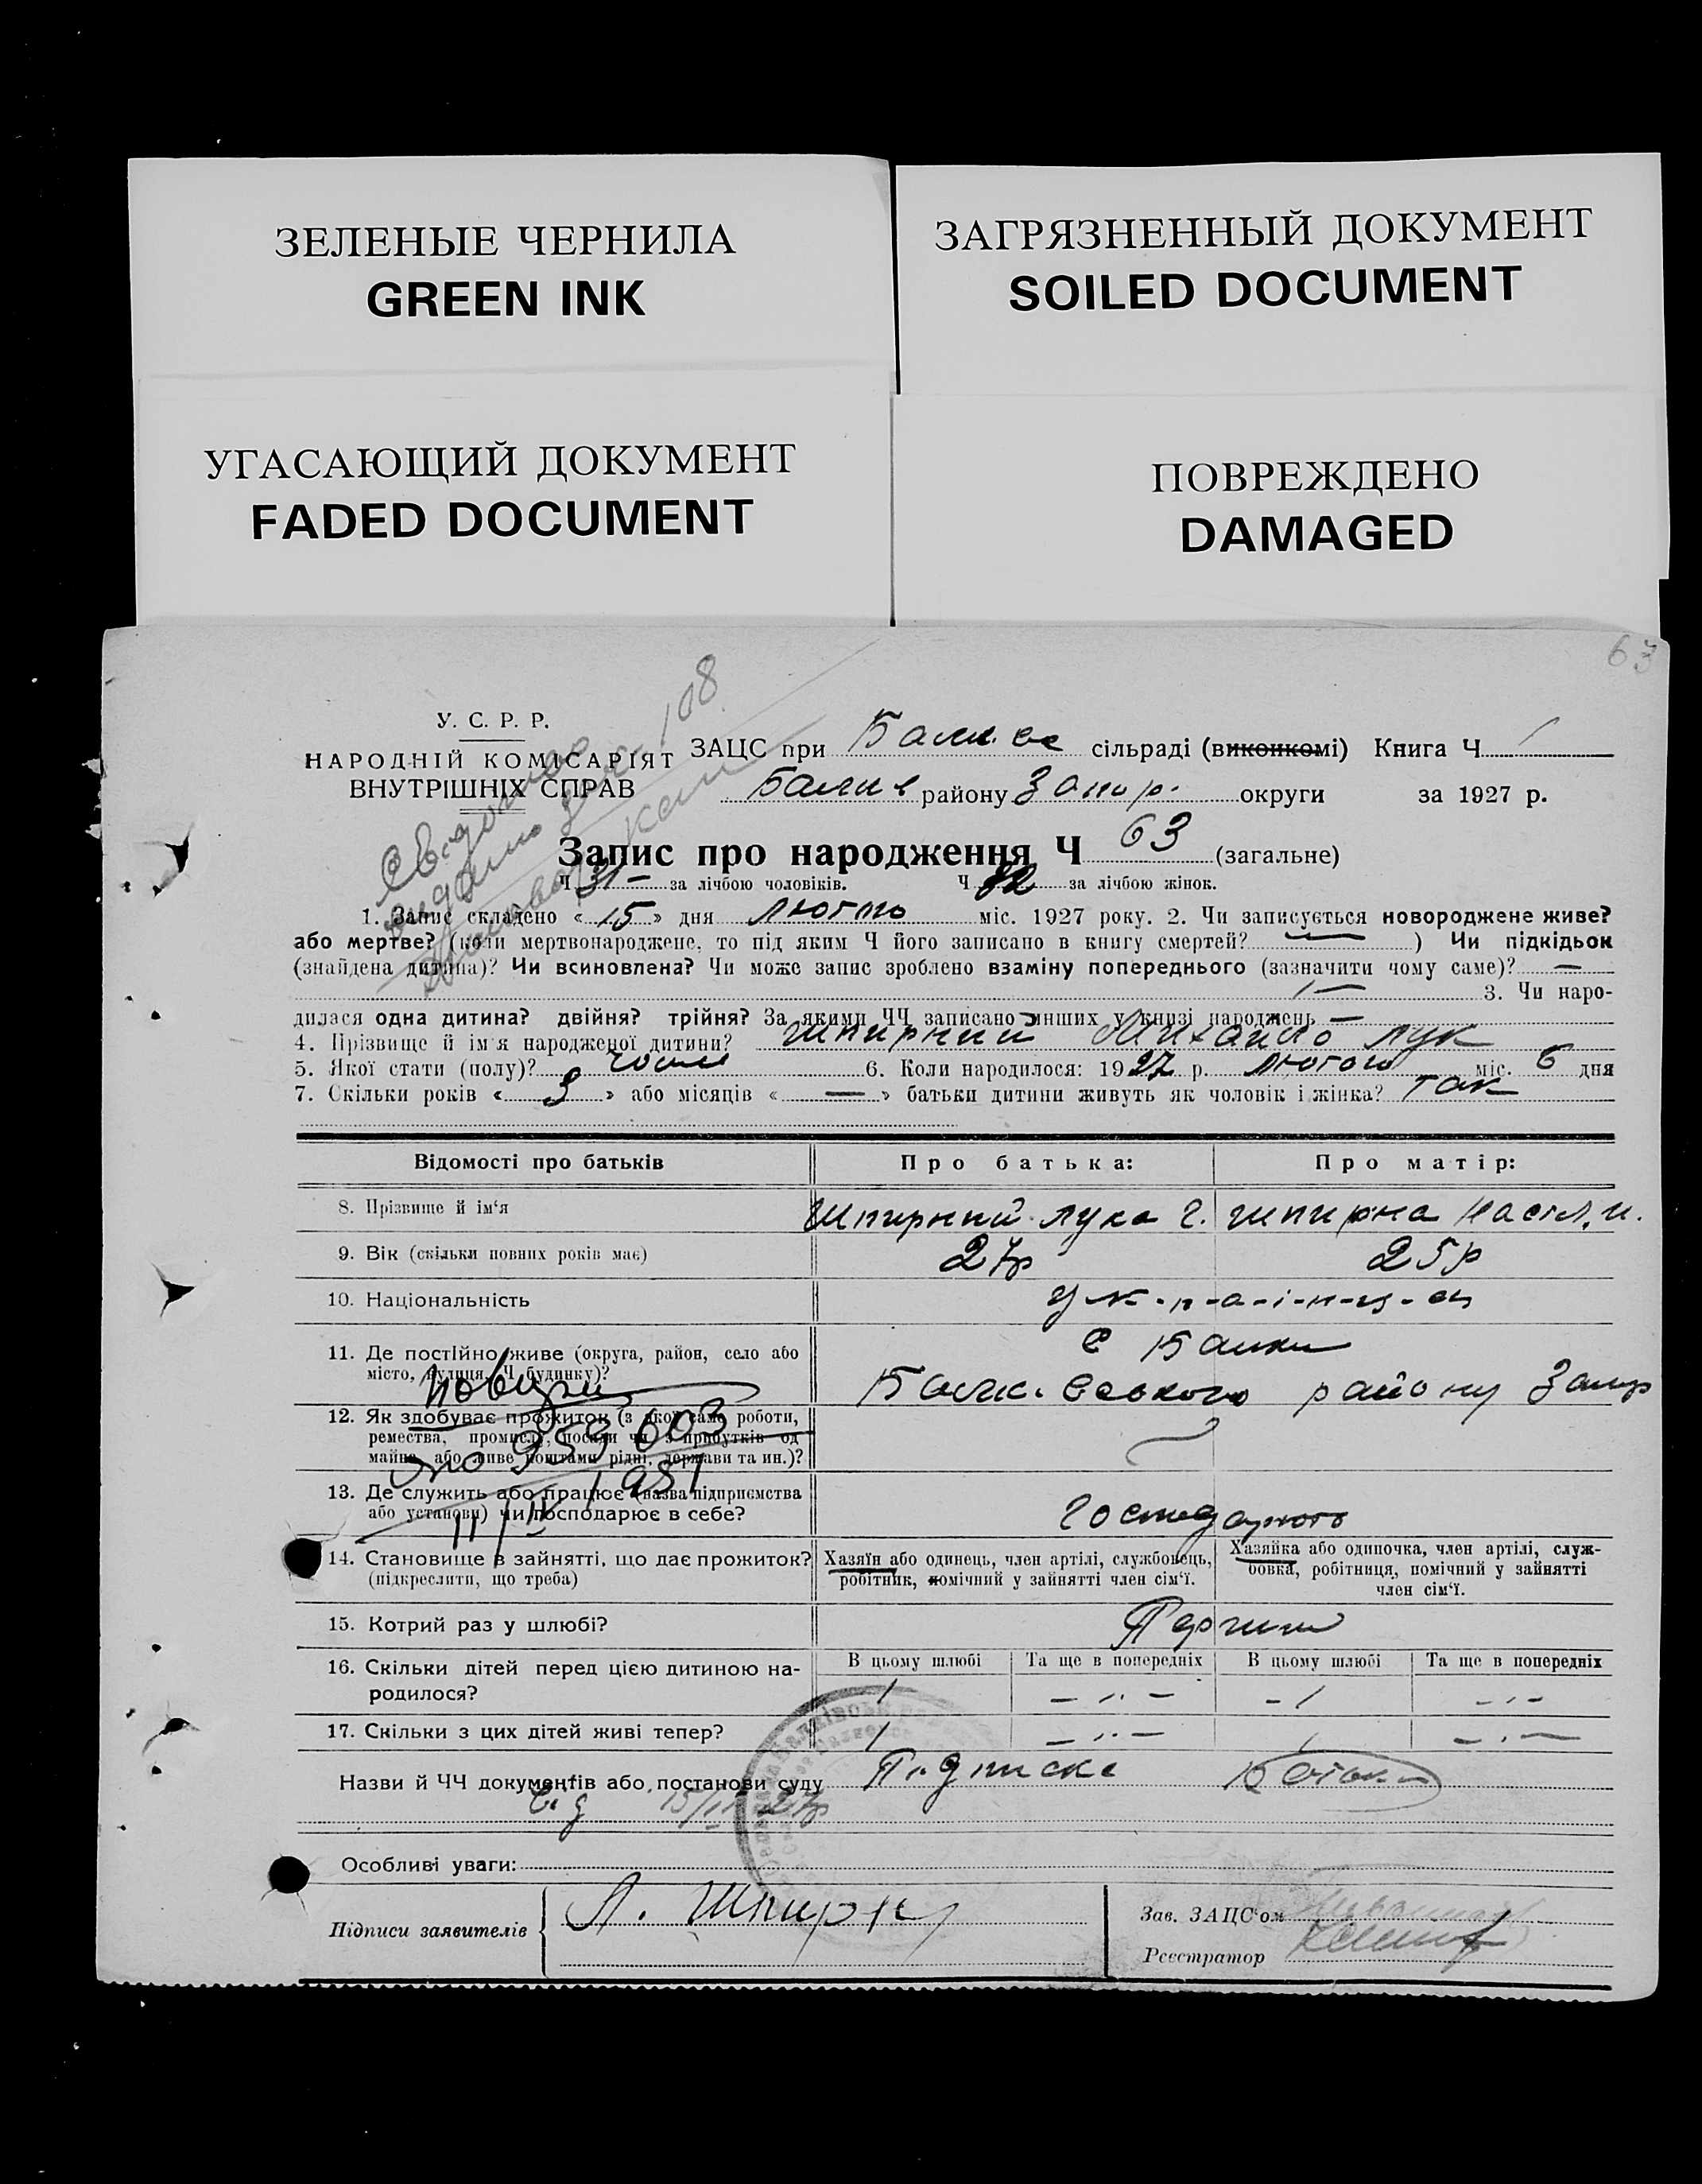 ЗЕЛЕНЫЕ ЧЕРНИЛА
GREEN INK
ЗАГРЯЗНЕННЫЙ ДОКУМЕНТ
SOILED DOCUMENT
УГАСАЮЩИЙ ДОКУМЕНТ
FADED DOCUMENT
ПОВРЕЖДЕНО
DAMAGED
63
108
У. С. Р. Р.
НАРОДНІЙ КОМІСАРІЯТ
ВНУТРІШНІХ СПРАВ
ЗАЦС при сільраді (виконкомі) Книга Ч 1
району Запор. округи за 1927 р.
Запис про народження Ч 63 (загальне)
Ч 31 за лічбою чоловіків. Ч за лічбою жінок.
1. Запис складено « 15 » дня лютого міс. 1927 року. 2. Чи записується новороджене живе?
або мертве? (коли мертвонароджене, то під яким Ч його записано в книгу смертей? — ) Чи підкідьок
(знайдена дитина)? Чи всиновлена? Чи може запис зроблено взаміну попереднього (зазначити чому саме)? —
3. Чи наро-
дилася одна дитина? двійня? трійня? За якими ЧЧ записано инших у книзі народжень —
4. Прізвище й ім'я народженої дитини? Шпирний Михайло Лук
5. Якої стати (полу)? чолов 6. Коли народилося: 1927 р. лютого міс. 6 дня
7. Скільки років « 3 » або місяців « — » батьки дитини живуть як чоловік і жінка? так
Відомості про батьків Про батька: Про матір:
8. Прізвище й ім'я Шпирний Лука Г. Шпирна Наст. И.
9. Вік (скільки повних років має) 27р 25р
10. Національність у-к-р-а-ї-н-ц-і
11. Де постійно живе (округа, район, село або с Балки
місто, вулиця, Ч будинку)?
району Запор
12. Як здобуває прожиток (з якої саме роботи,
ремества, промислу, посади чи з прибутків од
майна, або живе коштами рідні, держави та ин.)?
959603
1951
13. Де служить або працює (назва підприємства
або установи) чи господарює в себе?
14. Становище в зайнятті, що дає прожиток? Хазяїн або одинець, член артілі, службовець, Хазяйка або одиночка, член артілі, служ-
(підкреслити, що треба) робітник, помічний у зайнятті член сім'ї. бовка, робітниця, помічний у зайнятті
член сім'ї.
15. Котрий раз у шлюбі? Перший
16. Скільки дітей перед цією дитиною на- В цьому шлюбі Та ще в попередніх В цьому шлюбі Та ще в попередніх
родилося? 1 — „ — - 1 - „ -
17. Скільки з цих дітей живі тепер? 1 — „ — 1 — „ —
Назви й ЧЧ документів або постанови суду Підписка
від 15/II 27р
Особливі уваги:
Підписи заявителів Л. Шпирн
Зав. ЗАЦС'ом
Реєстратор